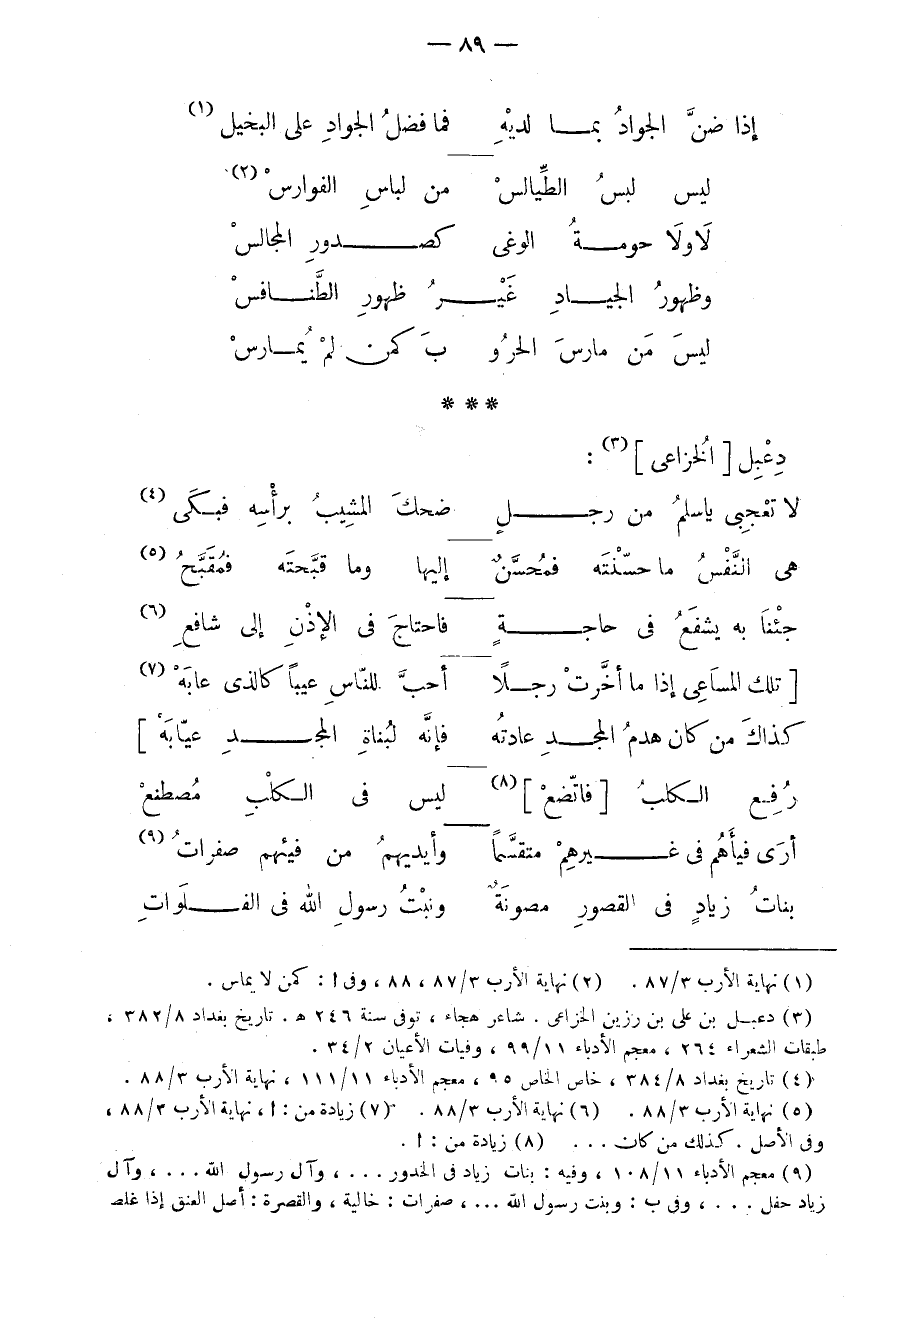 — ٨٩ —
إذا ضنَّ الجوادُ بمـــا لديْهِ فما فضلُ الجوادِ على البخيل (١)
ليس لبسُ الطِّيالسْ من لباسِ الفوارسْ (٢)
لَا ولَا حومـــةُ الوغى كصـــدورِ المجالسْ
وظهورُ الجيـــادِ غَيْـــرُ ظهورِ الطَّنـــافسْ
ليسَ مَن مارسَ الحرُو بَ كمن لمْ يُمـــارسْ
* * *
دِعْبِل [ الُخزاعى ] (٣) :
لا تعْجبِى ياسلمُ من رجـــلٍ ضحكَ المشيبُ برأْسِه فبـكَى (٤)
هى النَّفْسُ ما حسّنْتَه فمُحسَّنٌ إليها وما قبَّحتَه فمُقبَّحُ (٥)
جئْناَ به يشفَعُ فى حاجـــةٍ فاحتاجَ فى الإذْنِ إلى شافعِ (٦)
[ تلك المسَاعِى إذا ما أخَّرتْ رجـلًا أحبَّ للنّاسِ عيباً كالذى عابَهْ (٧)
كذاكَ من كان هدمُ المجـدِ عادتُه فإنَّه لبُناةِ المجـــدِ عيّابَهْ ]
رُفِـع الـكلبُ [ فاتّضعْ ] (٨) ليس فى الـكلْبِ مُصطنعْ
أرَى فيأَهُم فى غـــيرهِمْ متقسَّماً وأيديهمُ من فيْئهم صفراتُ (٩)
بناتُ زيادٍ فى القصورِ مصونَةٌ وبنْتُ رسولِ الله فى الفـــلَواتِ
(١) نهاية الأرب ٨٧/٣ . (٢) نهاية الأرب ٨٧/٣ ، ٨٨ ، وفى ا : كمن لا يماس .
(٣) دعبـل بن على بن رزين الخزاعى . شاعر هجاء ، توفى سنة ٢٤٦ ه . تاريخ بغداد ٣٨٢/٨ ،
طبقات الشعراء ٢٦٤ ، معجم الأدباء ٩٩/١١ ، وفيات الأعيان ٣٤/٢ .
(٤) تاريخ بغداد ٣٨٤/٨ ، خاص الخاص ٩٥ ، معجم الأدباء ١١١/١١ ، نهاية الأرب ٨٨/٣ .
(٥) نهاية الأرب ٨٨/٣ . (٦) نهاية الأرب ٨٨/٣ . (٧) زيادة من : ا ، نهاية الأرب ٨٨/٣ ،
وفى الأصل . كذلك من كان ... (٨) زيادة من : ا .
(٩) معجم الأدباء ١٠٨/١١ ، وفيه : بنات زياد فى الخدور ... ، وآل رسول الله ... ، وآل
زياد حفل ... ، وفى ب : وبنت رسول الله ... ، صفرات : خالية ، والقصرة : أصل العنق إذا غلص